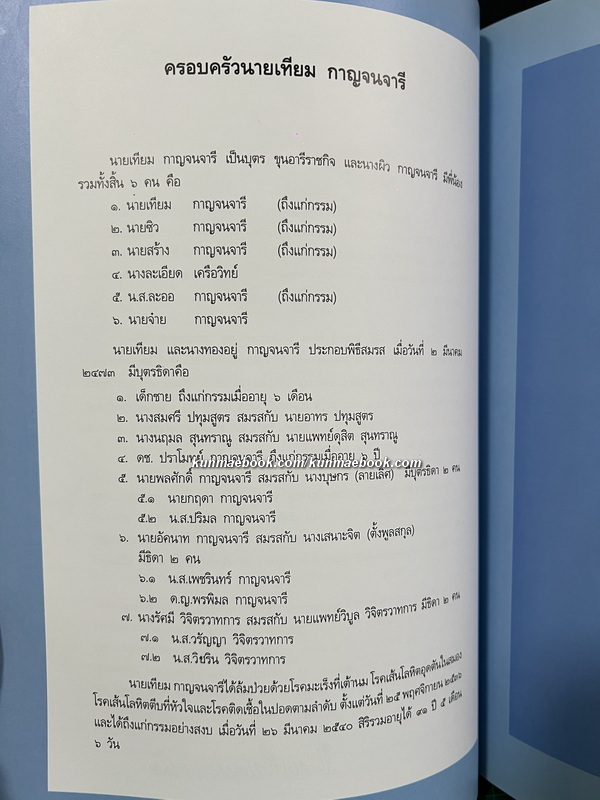 ครอบครัวนายเทียม กาญจนจารี
นายเทียม กาญจนจารี เป็นบุตร ขุนอารีราชกิจ และนางผิว กาญจนจารี มีพี่น้อง
รวมทั้งสิ้น ๖ คน คือ
๑. นายเทียม กาญจนจารี (ถึงแก่กรรม)
๒. นายซิว กาญจนจารี (ถึงแก่กรรม)
๓. นายสร้าง กาญจนจารี (ถึงแก่กรรม)
๔. นางละเอียด เครือวิทย์
๕. น.ส.ละออ กาญจนจารี (ถึงแก่กรรม)
๖. นายจำย กาญจนจารี
นายเทียม และนางทองอยู่ กาญจนจารี ประกอบพิธีสมรส เมื่อวันที่ ๒ มีนาคม
๒๔๗๓ มีบุตรธิดาคือ
๑. เด็กชาย ถึงแก่กรรมเมื่ออายุ ๖ เดือน
๒. นางสมศรี ปทุมสูตร สมรสกับ นายอาทร ปทุมสูตร
๓. นางนฤมล สุนทราณู สมรสกับ นายแพทย์ดุสิต สุนทราณู
๔. ดช. ปราโมทย์ กาญจนจารี ถึงแก่กรรมเมื่ออายุ ๖ ปี
kunmaebook.com/kunmaebook.com
๕. นายพลศักดิ์ กาญจนจารี สมรสกับ นางบุษกร (ลายเลิศ) มีบุตรธิดา ๒ คน
๕.๑ นายกฤดา กาญจนจารี
๕.๒ น.ส.ปริมล กาญจนจารี
๖. นายอัคนาท กาญจนจารี สมรสกับ นางเสนาะจิต (ตั้งพูลสกุล)
มีธิดา ๒ คน
๖.๑ น.ส.เพชรินทร์ กาญจนจารี
๖.๒ ด.ญ.พรพิมล กาญจนจารี
๗. นางรัศมี วิจิตรวาทการ สมรสกับ นายแพทย์วิบูล วิจิตรวาทการ มีธิดา ๒ คน
๗.๑ น.ส.วรัญญา วิจิตรวาทการ
๗.๒ น.ส.วิชริน วิจิตรวาทการ
นายเทียม กาญจนจารีได้ล้มป่วยด้วยโรคมะเร็งที่เต้านม โรคเส้นโลหิตอุดตันในสมอง
โรคเส้นโลหิตตีบที่หัวใจและโรคติดเชื้อในปอดตามลำดับ ตั้งแต่วันที่ ๒๕ พฤศจิกายน ๒๕๓๖
และได้ถึงแก่กรรมอย่างสงบ เมื่อวันที่ ๒๖ มีนาคม ๒๕๔๐ สิริรวมอายุได้ ๙๑ ปี ๕ เดือน
๖ วัน